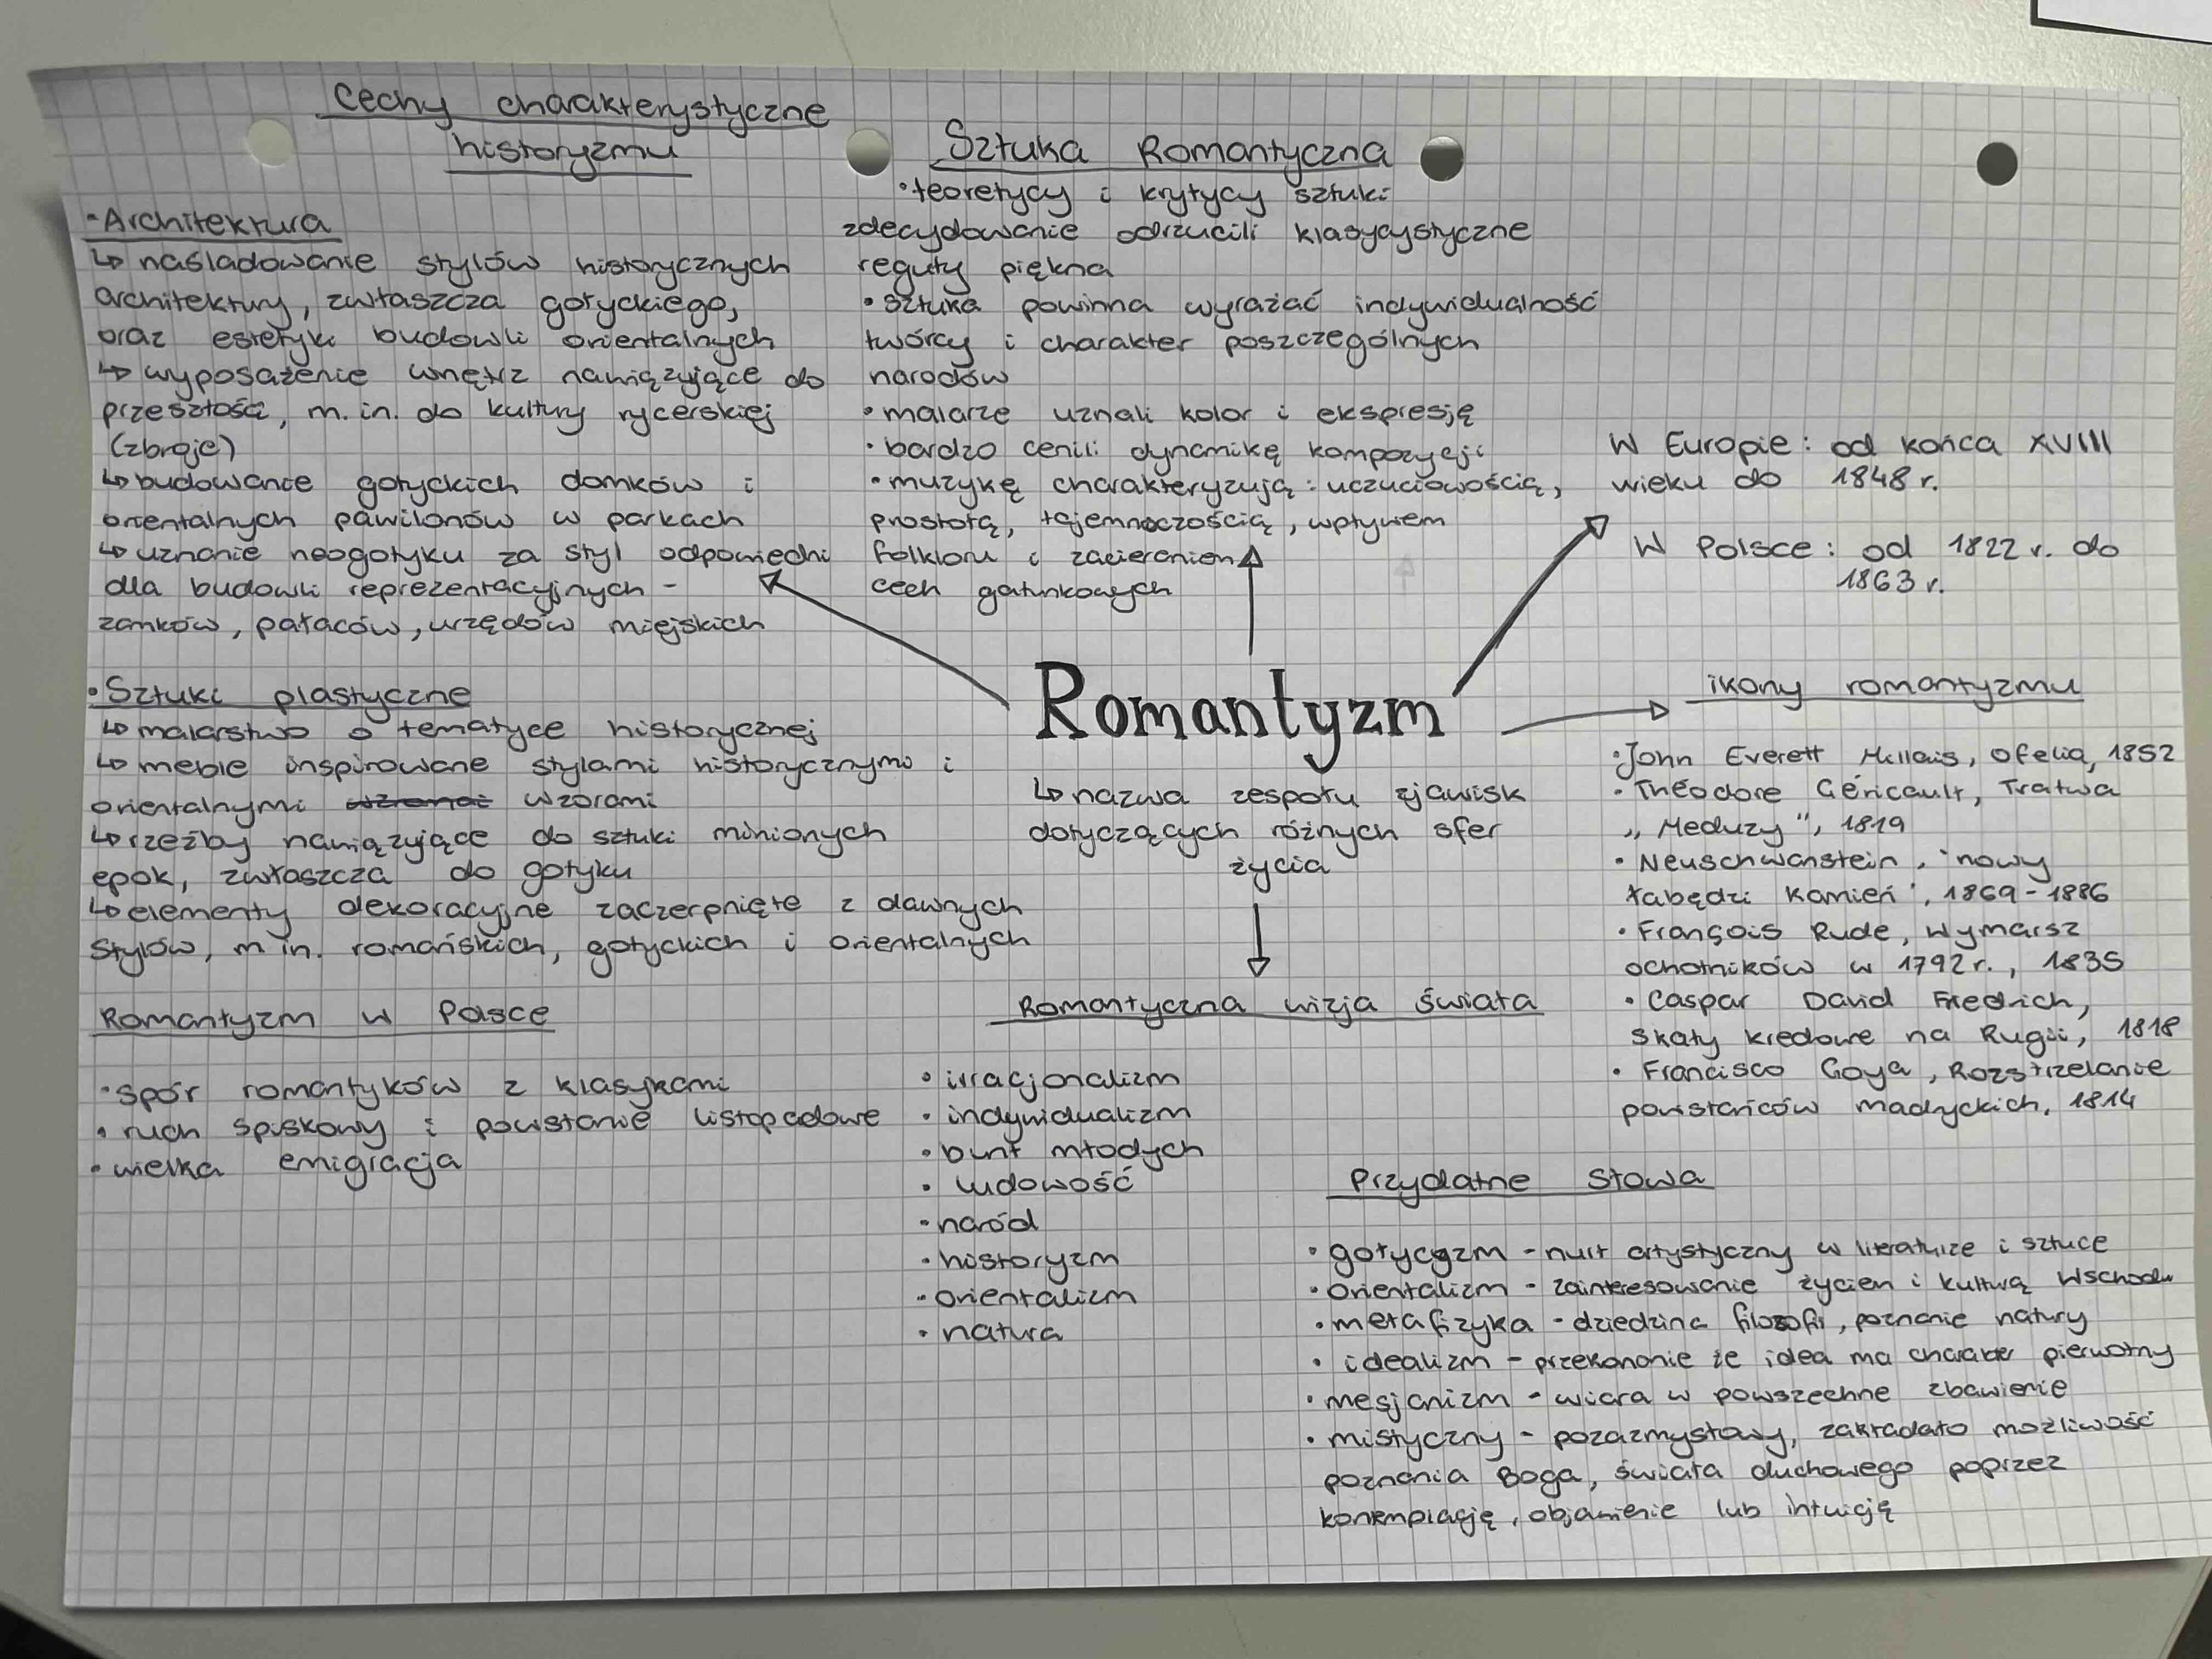 Cechy charakterystyczne
historyzmu
•Architektura
↳ naśladowanie stylów historycznych
architektury, zwłaszcza gotyckiego,
oraz estetyki budowli orientalnych
↳ wyposażenie wnętrz nawiązujące do
przeszłości, m.in. do kultury rycerskiej
(zbroje)
↳ budowanie gotyckich domków i
orientalnych pawilonów w parkach
↳ uznanie neogotyku za styl odpowiedni
dla budowli reprezentacyjnych -
zamków, pałaców, urzędów miejskich
•Sztuki plastyczne
↳ malarstwo o tematyce historycznej
↳ meble inspirowane stylami historycznymi i
orientalnymi wzorami
↳ rzeźby nawiązujące do sztuki minionych
epok, zwłaszcza do gotyku
↳ elementy dekoracyjne zaczerpnięte z dawnych
stylów, m in. romańskich, gotyckich i orientalnych
Romantyzm w Polsce
•spór romantyków z klasykami
• ruch spiskowy i powstanie listopadowe
• wielka emigracja
Sztuka Romantyczna
•teoretycy i krytycy sztuki
zdecydowanie odrzucili klasycystyczne
reguły piękna
• sztuka powinna wyrażać indywidualność
twórcy i charakter poszczególnych
narodów
• malarze uznali kolor i ekspresję
• bardzo cenili dynamikę kompozycji
• muzykę charakteryzują: uczuciowością,
prostotą, tajemniczością, wpływem
folkloru i zacieraniem
cech gatunkowych
Romantyzm
↳ nazwa zespołu zjawisk
dotyczących różnych sfer
życia
Romantyczna wizja świata
• irracjonalizm
• indywidualizm
• bunt młodych
• ludowość
• naród
• historyzm
• orientalizm
• natura
W Europie: od końca XVIII
wieku do 1848 r.
W Polsce: od 1822 r. do
1863 r.
ikony romantyzmu
•John Everett Millais, Ofelia, 1852
• Théodore Géricault, Tratwa
„Meduzy", 1819
• Neuschwanstein, 'nowy
łabędzi kamień', 1869-1886
• François Rude, Wymarsz
ochotników w 1792 r., 1835
• Caspar David Friedrich,
Skały kredowe na Rugii, 1818
• Francisco Goya, Rozstrzelanie
powstańców madryckich, 1814
Przydatne słowa
• gotycyzm - nurt artystyczny w literaturze i sztuce
• orientalizm - zainteresowanie życiem i kulturą Wschodu
• metafizyka - dziedzina filozofii, poznanie natury
• idealizm - przekonanie że idea ma charakter pierwotny
• mesjanizm - wiara w powszechne zbawienie
• mistyczny - pozazmysłowy, zakładało możliwość
poznania Boga, świata duchowego poprzez
kontemplację, objawienie lub intuicję